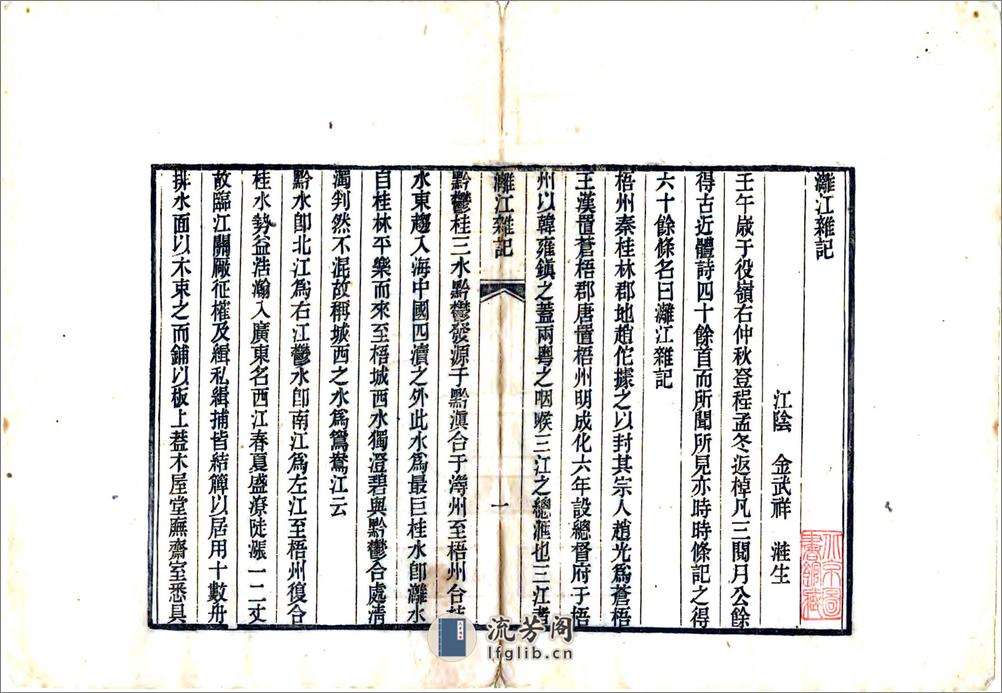 灕江雜記
江陰　金武祥　溎生
壬午歲于役嶺右仲秋登程孟冬返棹凡三閱月公餘
得古近體詩四十餘首而所聞所見亦時時條記之得
六十餘條名曰灕江雜記
梧州秦桂林郡地趙佗據之以封其宗人趙光爲蒼梧
王漢置蒼梧郡唐置梧州明成化六年設總督府于梧
州以韓雍鎭之蓋兩粵之咽喉三江之總滙也三江者
灕江雜記
一
黔鬱桂三水黔鬱發源于黔滇合于潯州至梧州合桂
水東趨入海中國四瀆之外此水爲最巨桂水卽灕水
自桂林平樂而來至梧城西水獨澄碧與黔鬱合處淸
濁判然不混故稱城西之水爲鴛鴦江云
黔水卽北江爲右江鬱水卽南江爲左江至梧州復合
桂水勢益浩瀚入廣東名西江春夏盛潦陡漲一二丈
故臨江關廠征榷及緝私緝捕皆結簰以居用十數舟
排水面以木束之而鋪以板上葢木屋堂廡齋室悉具
流芳阁
lfglib.cn